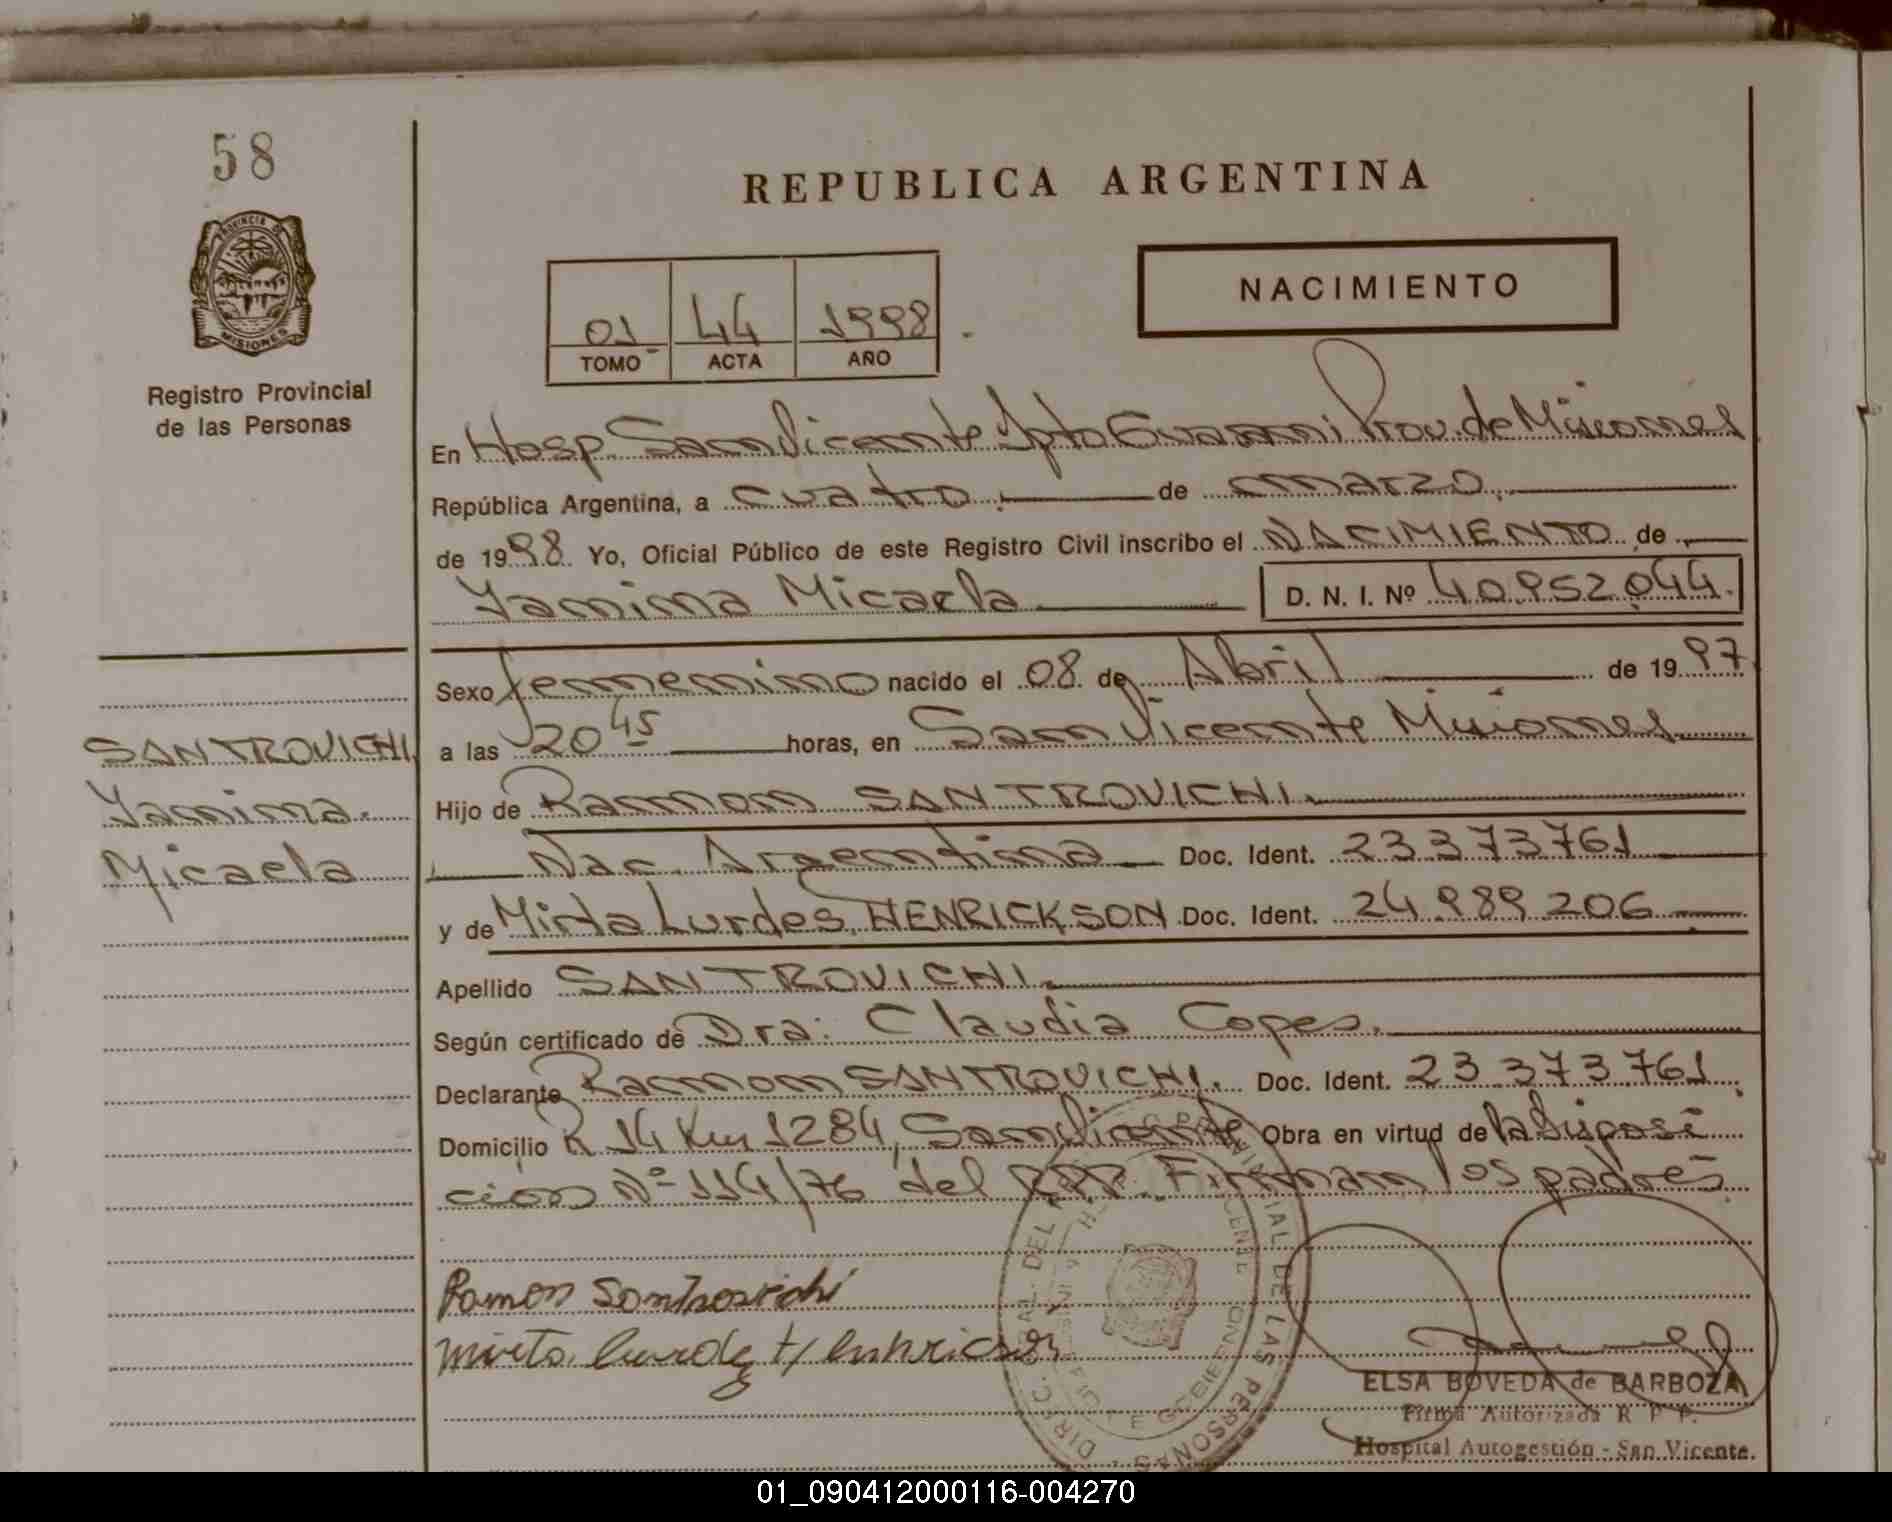 58
REPUBLICA ARGENTINA
PROVINCIA DE
MISIONES
Registro Provincial
de las Personas
NACIMIENTO
01 44 1998
TOMO ACTA AÑO
En Hosp. San Vicente Dpto Guarani Prov. de Misiones
República Argentina, a cuatro de marzo
de 1998 Yo, Oficial Público de este Registro Civil inscribo el NACIMIENTO de
Yamima Micaela D. N. I. Nº 40.952.044.
Sexo femenino nacido el 08 de Abril de 1997
SANTROVICHI
Yamima
Micaela
a las 20 45 horas, en San Vicente Misiones
Hijo de Ramon SANTROVICHI
Nac. Argentina Doc. Ident. 23373761
y de Mirta Lurdes HENRICKSON Doc. Ident. 24.989.206
Apellido SANTROVICHI
Según certificado de Dra: Claudia Copes.
Declarante Ramon SANTROVICHI. Doc. Ident. 23.373.761
Domicilio R 14 Km 1284, San Vicente Obra en virtud de la Disposi
cion Nº 114/76 del R.P.P. Firman los padres
Ramon Santrovichi
DIREC. GRAL. DEL PROVINCIAL DE LAS PERSONAS
ELSA BOVEDA de BARBOZA
Firma Autorizada R P P.
Hospital Autogestión - San Vicente.
01_090412000116-004270